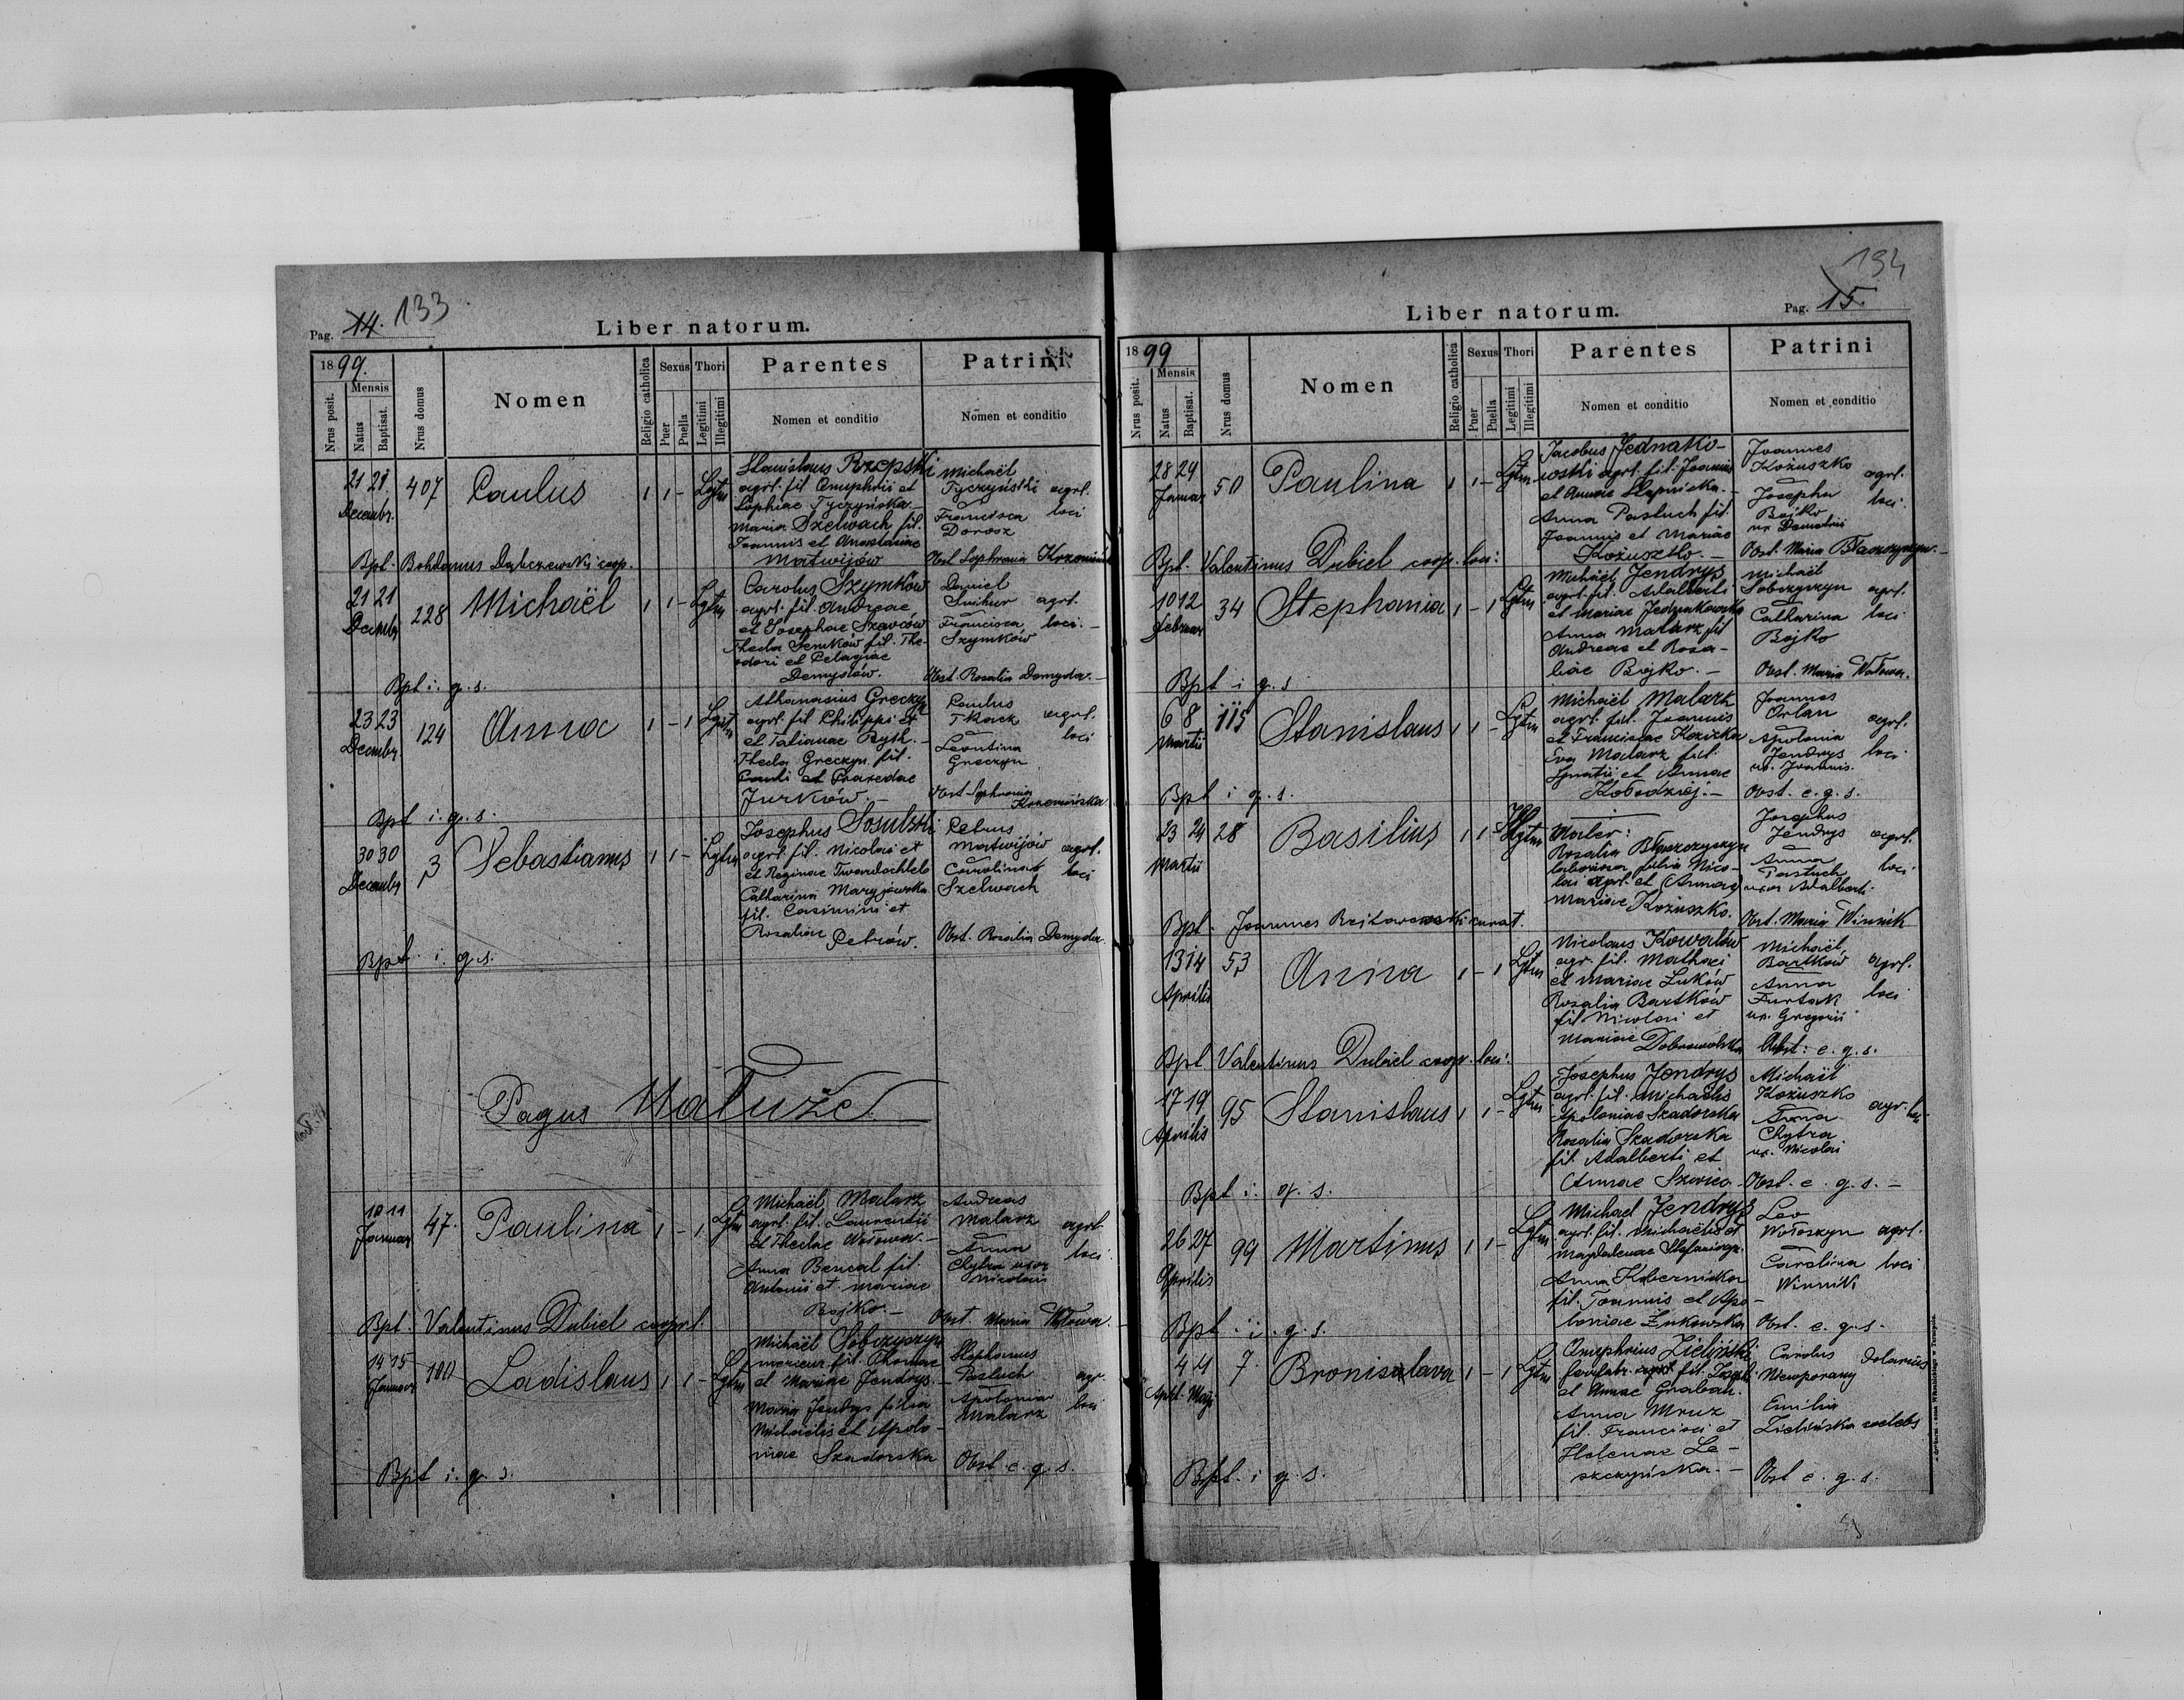 Pag. 14. 133
Liber natorum.
1899.
Mensis
Nrus posit.
Natus
Baptisat.
Nrus domus
Nomen
Religio catholica
Sexus
Puer
Puella
Thori
Legitimi
Illegitimi
Parentes
Nomen et conditio
Patrini
Nomen et conditio
21 21
Decembr.
407
Paulus
1 1 -
Lgtm
Stanislaus Rzepski
agrl. fil Onuphrii et
Sophiae Tyczyńska
Maria Szelwach fil.
Joannis et Anastasiae
Matwijów
Michaël
Tyczyński agrl.
Francisca loci
Dorosz
Bpt. Bohdanus Dąbczewski coop.
Obst Sophronia
21 21
Decembr
228
Michaël
1 1 -
Lgtm
Carolus Szymków
agrl. fil. Andreae
et Josephae Szewców
Thecla Senków fil. The-
odori et Pelagiae
Demysłów.
Daniel
Smihur agrl.
Francisca loci
Szymków
Obst. Rosalia Demyda.
Bpt i. q. s.
23 23
Decembr
124
Anna
1 - 1
Lgtm
Athanasius Greczyn
agrl. fil Philippi et
et Tatianae Bysk.
Thecla Greczyn fil.
Pauli et Praxedae
Jurków.
Paulus
Tkacz agrl.
Leontina loci
Greczyn
Obst Sophronia
Bpt i. q. s.
30 30
Decembr
3
Sebastianus
1 1 -
Lgtm
Josephus Sosulski
agrl. fil. Nicolai et
et Reginae
Catharina Maryjowska
fil. Casimiri et
Rosaliae Petrów.
Petrus
Matwijów agrl.
Carolina loci
Szelwach
Obst. Rosalia Demyda.
Bpt i. q. s.
Pagus Nałuże
10 11
Januar
47.
Paulina
1 - 1
Lgtm
Michaël Malarz
agrl. fil. Laurentii
et Theclae
Anna Bencal fil.
Antonii et Mariae
Bojko
Andreas
Malarz agrl
Anna loci
Chytra uxor
Nicolai
Bpt. Valentinus Dubiel cooprl.
Obst. Maria Wołowa.
14 15
Januar
100
Ladislaus
1 1 -
Lgtm
Michaël Sobczyszyn
fil. Thomae
et Mariae Jendrys.
Maria Jendrys filia
Michaëlis et Apolo-
niae Szadorska
Stephanus
Pastuch agr.
Apolonia loci
Malarz
Obst e. q. s.
Bpt i. q. s.
Liber natorum.
Pag. 15. 134
1899
Mensis
Nrus posit.
Natus
Baptisat.
Nrus domus
Nomen
Religio catholica
Sexus
Puer
Puella
Thori
Legitimi
Illegitimi
Parentes
Nomen et conditio
Patrini
Nomen et conditio
28 29
Januar
50
Paulina
Lgtm
Jacobus Jednako-
wski agrl. fil. Joannis
et Annae
Anna Pastuch fil.
Joannis et Mariae
Kożuszko.
Joannes
Kożuszko agrl.
Josepha loci
Bojko
ux. Demetrii
Obst. Maria
Bpt. Valentinus Dubiel coop. loci:
10 12
Februar
34
Stephania
1 - 1
Lgtm
Michaël Jendrys
agrl. fil. Adalberti
et Mariae Jednakowska
Anna Malarz fil
Andreae et Rosa-
liae Bojko.
Michaël
Sobczyszyn agrl.
Catharina loci
Bojko
Obst. Maria Wołowa.
Bpt i q. s
6 8
Martii
115
Stanislaus
1 1 -
Lgtm
Michaël Malarz
agrl. fil. Joannis
et Franciscae
Eva Malarz fil.
Ignatii et Annae
Kołodziej.
Joannes
Orlan agrl.
Apolonia
Jendrys loci
ux. Joannis.
Obst. e. q. s.
Bpt i q. s.
23 24
Martii
28
Basilius
1 1
Illgtm
Mater:
Rosalia Błaszczyszyn
filia Nico-
lai agrl. et (Annae)
Mariae Kożuszko.
Josephus
Jendrys agrl.
Anna loci
Pastuch
uxor Adalberti.
Obst. Maria Winnik
Bpt. Joannes curat.
13 14
Aprilis
53
Anna
1 - 1
Lgtm
Nicolaus Kowalów
agr. fil. Mathaei
et Mariae Luków
Rosalia Bartków
fil Nicolai et
Mariae Dobrowolska
Michaël
Bartków agrl.
Anna
Furtak loci
ux. Gregorii
Obst: e. q. s.
Bpt Valentinus Dubiel coop. loci:
17 19
Aprilis
95
Stanislaus
1 1 -
Lgtm
Josephus Jendrys
agrl. fil. Michaëlis
Apoloniae Szadorska
Rosalia Szadorska
fil. Adalberti et
Annae
Michaël
Kożuszko
Anna agr. loci
Chytra
ux. Nicolai
Obst. e. q. s.
Bpt i. q. s.
26 27
Aprilis
99
Martinus
1 1 -
Lgtm
Michael Jendrys
agrl. fil. Michaëlis et
Magdalenae
Anna Kobernicka
fil. Joannis et Apo-
loniae Żukowska
Leo
Wołoszyn agrl.
Carolina loci
Winnik
Obst. e. q. s.
Bpt. i. q. s.
4 4
7
Bronislava
1 - 1
Lgtm
Onuphrius Zieliński
fil. Joseph
et Annae Graban.
Anna Mruz
fil. Francisci et
Helenae Le-
szczyńska.
Carolus dolarius
Niewporany
Emilia
Zielińska coelebs
Obst e. q. s.
Bpt. i q. s.